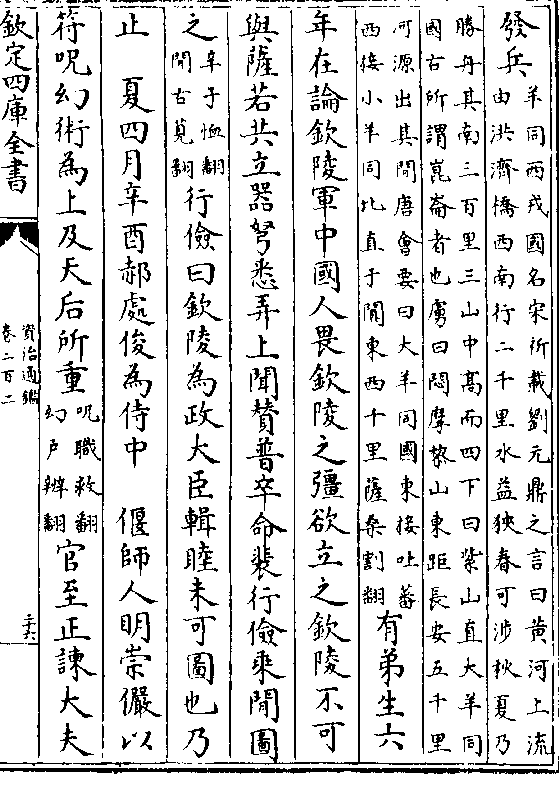 發兵羊同西戎國名宋祈載劉元鼎之言曰黃河上流由洪濟橋西南行二千里水益狹春可涉秋夏乃
勝舟其南三百里三山中高而四下曰紫山直大羊同國古所謂崑崙者也虜曰悶摩黎山東距長安五千里
可源出其間唐會要曰大羊同國東接吐蕃西接小羊同北直于闐東西千里薩桑割翻有弟生六
年在論欽陵軍中國人畏欽陵之彊欲立之欽陵不可
與薩若共立器弩悉弄上聞贊普卒命裴行儉乘閒圖
之卒子恤翻閒古莧翻行儉曰欽陵為政大臣輯睦未可圖也乃
止　夏四月辛酉郝處俊為侍中　偃師人明崇儼以
符呪幻術為上及天后所重呪職救翻幻戶辨翻官至正諫大夫
欽定四庫全書
資治通鑑
卷二百二
三六